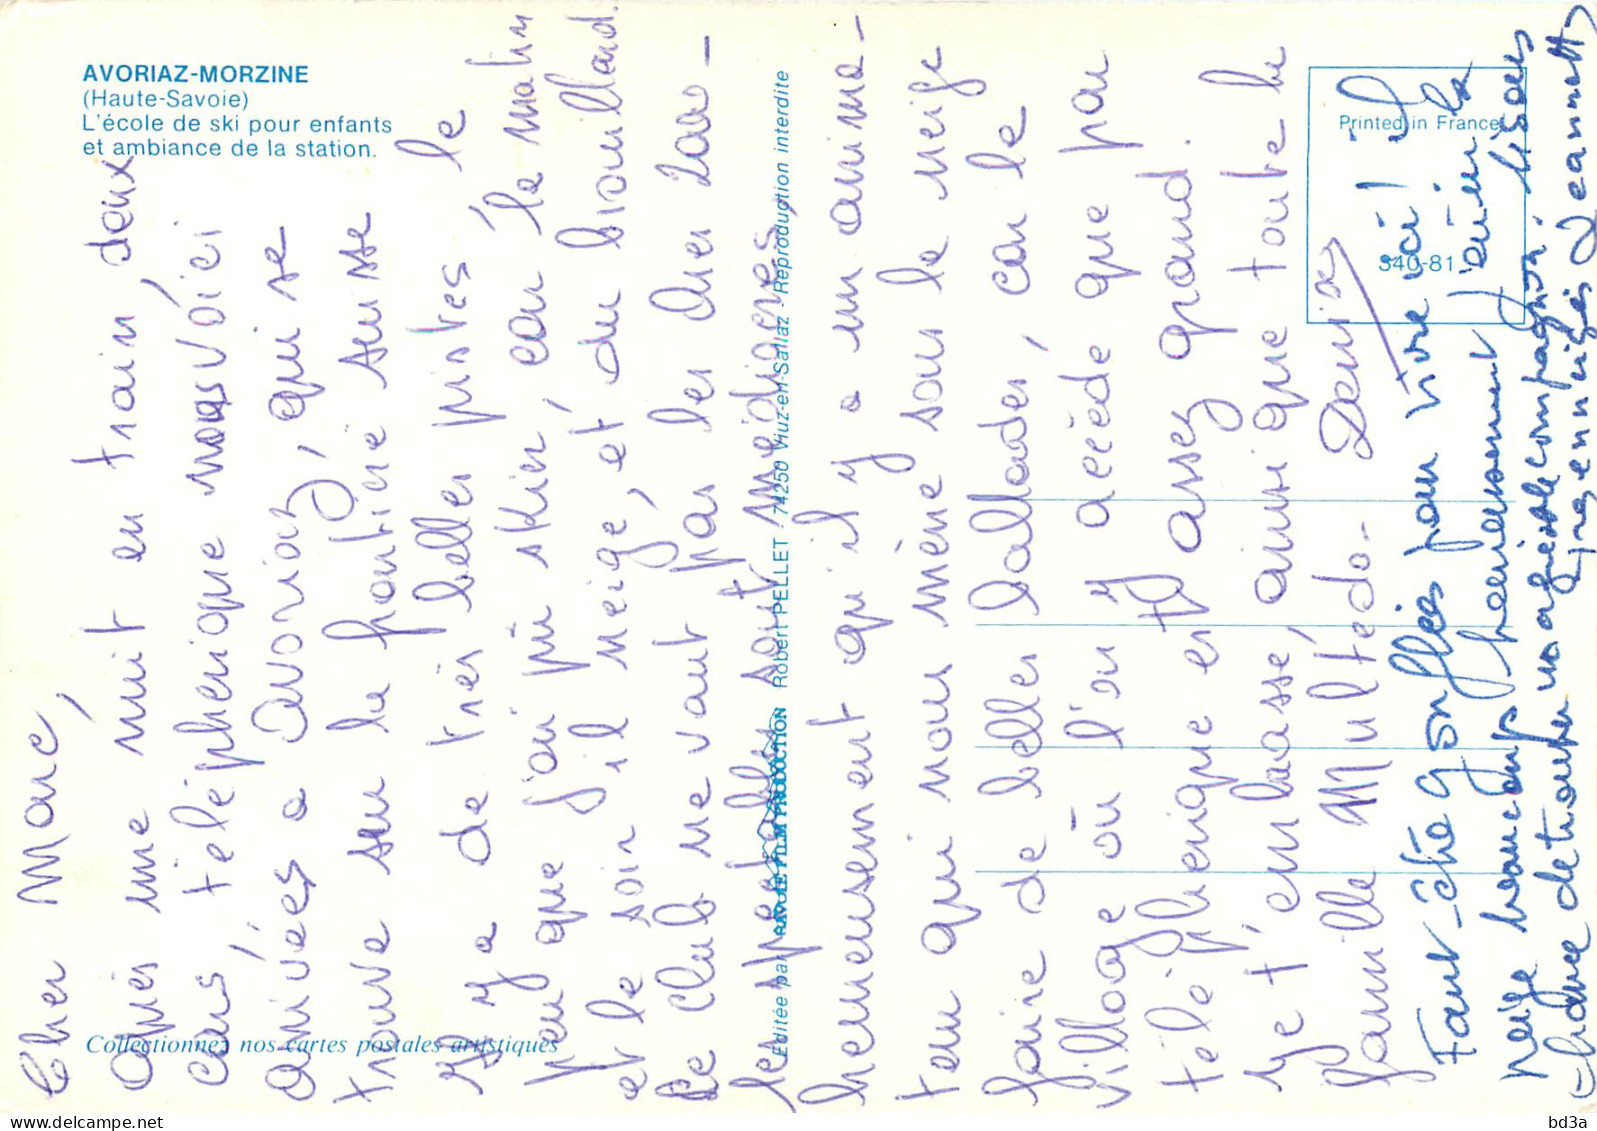 AVORIAZ-MORZINE
(Haute-Savoie)
L'école de ski pour enfants
et ambiance de la station.
Printed in France
340-81
Collectionnez nos cartes postales artistiques
Editée par SAVOIE FILM PRODUCTION Robert PELLET - 74250 Viuz-en-Sallaz - Reproduction interdite
Cher Marc,
Après une nuit en train, deux
cars, télépherique nous voici
arrivées a Avoriaz, qui se
trouve sur la frontière suisse
Il y a de très belles pistes, le
peu que j'ai pû skier, car le matin
et le soir il neige, et du brouillard.
Le Club ne vaut pas les cher 2000 -
les repas sont mediocres,
heureusement qu'il y a un anima-
teur qui nous mène sous la neige
faire de belles ballades, car le
village où l'on y accède que par
télépherique est assez grand.
Je t'embrasse, ainsi que toute la
famille Multédo. Denise
Faut-être gonflées pour vivre ici! J'
ai eu la
neige beaucoup heureusement
chance de trouver une agréable compagnie. bisous
Jeannette
bd3a